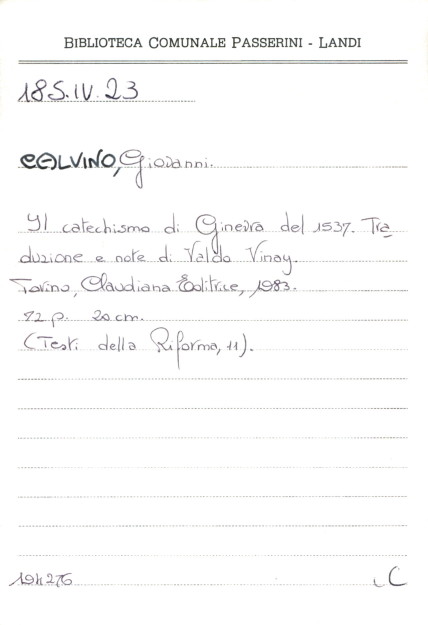 BIBLIOTECA COMUNALE PASSERINI - LANDI
18S.IV.23
CALVINO, Giovanni.
Il catechismo di Ginevra del 1537. Tra
duzione e note di Valdo Vinay.
Torino, Claudiana Editrice, 1983.
72 p. 20 cm.
(Testi della Riforma, 11).
194276
C